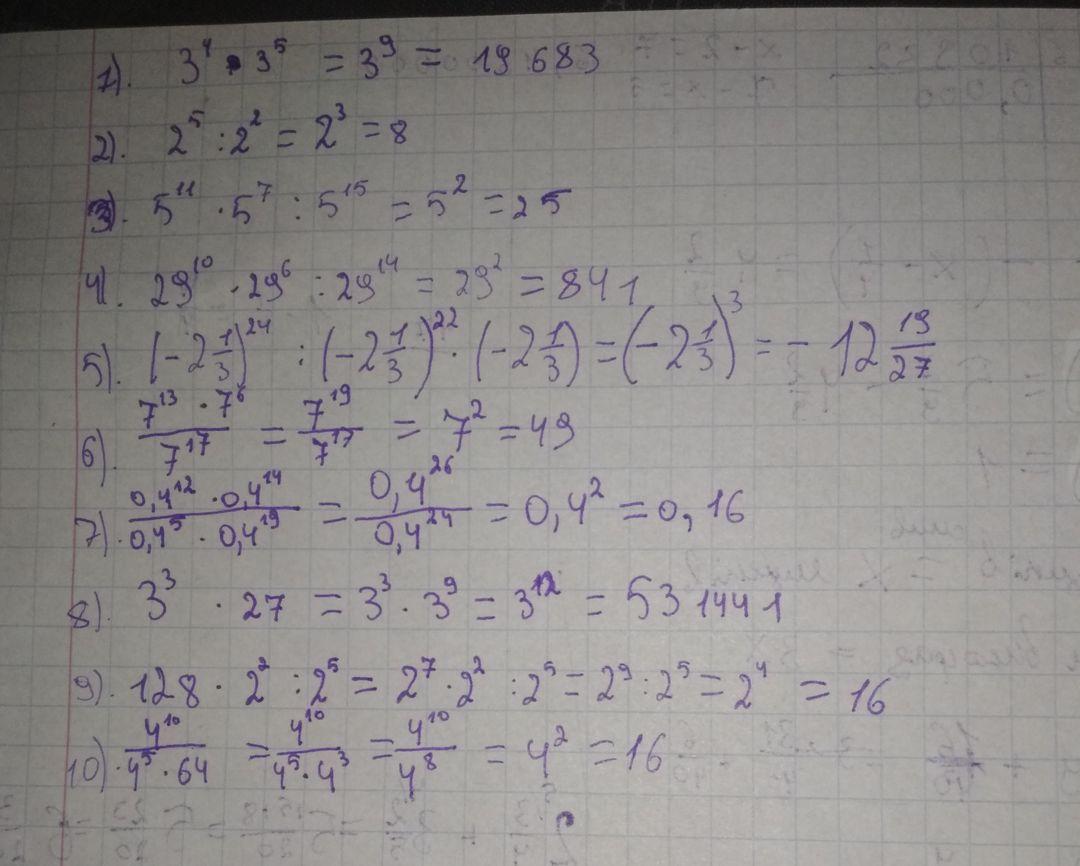 1). 3⁴ · 3⁵ = 3⁹ = 19 683
2). 2⁵ : 2² = 2³ = 8
3). 5¹¹ · 5⁷ : 5¹⁵ = 5² = 25
4). 29¹⁰ · 29⁶ : 29¹⁴ = 29² = 841
5). (-2 1/3)²⁴ : (-2 1/3)²² · (-2 1/3) = (-2 1/3)³ = - 12 19/27
6). 7¹³ · 7⁶ / 7¹⁷ = 7¹⁹ / 7¹⁷ = 7² = 49
7). 0,4¹² · 0,4¹⁴ / 0,4⁵ · 0,4¹⁹ = 0,4²⁶ / 0,4²⁴ = 0,4² = 0,16
8). 3³ · 27 = 3³ · 3⁹ = 3¹² = 531441
9). 128 · 2² : 2⁵ = 2⁷ · 2² : 2⁵ = 2⁹ : 2⁵ = 2⁴ = 16
10). 4¹⁰ / 4⁵ · 64 = 4¹⁰ / 4⁵ · 4³ = 4¹⁰ / 4⁸ = 4² = 16